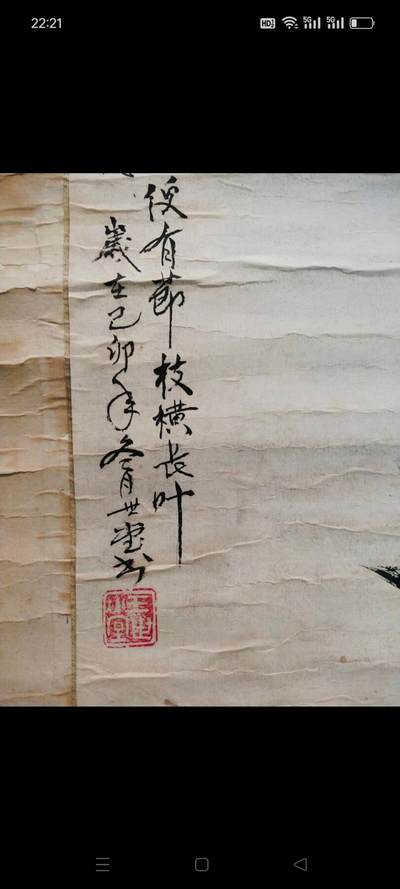 22:21
HD 5G 5G
便有節枝横长叶
歲在己卯年冬月世堂书